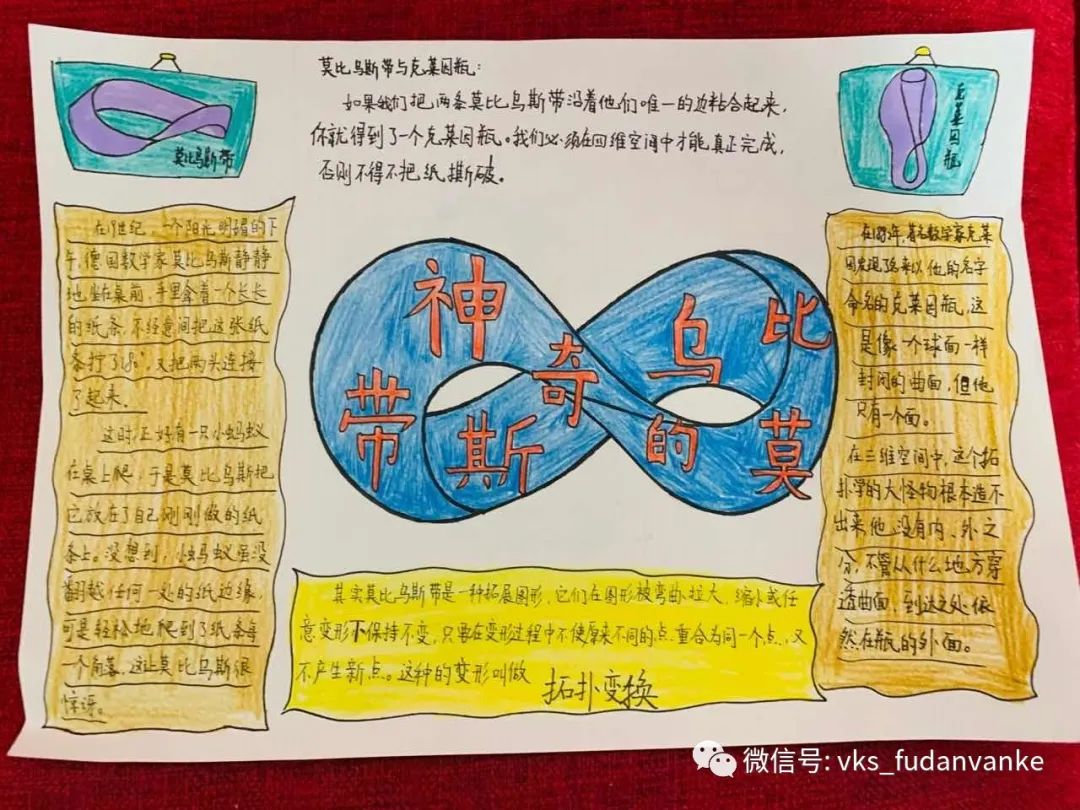 莫比乌斯带
莫比乌斯带与克莱因瓶:
如果我们把两条莫比乌斯带沿着他们唯一的边粘合起来,
你就得到了一个克莱因瓶。我们必须在四维空间中才能真正完成,
否则不得不把纸撕破。
克莱因瓶
在19世纪,一个阳光明媚的下
午,德国数学家莫比乌斯静静
地坐在桌前,手里拿着一个长长
的纸条,不经意间把这张纸
条拧了18°,又把两头连接
了起来。
这时,正好有一只小蚂蚁
在桌上爬,于是莫比乌斯把
它放在了自己刚刚做的纸
条上。没想到,小蚂蚁虽没
翻越任何一处的纸边缘,
可是轻松地爬到了纸条每
一个角落,这让莫比乌斯很
惊讶。
神奇的莫比乌斯带
其实莫比乌斯带是一种拓展图形,它们在图形被弯曲、拉大、缩小或任
意变形下保持不变,只要在变形过程中不使原来不同的点重合为同一个点,又
不产生新点。这种的变形叫做
拓扑变换
年,著名数学家克莱
因发现了后来以他的名字
命名的克莱因瓶,这
是像一个球面一样
封闭的曲面,但他
只有一个面。
在三维空间中,这个拓
扑学的大怪物根本造不
出来,他没有内、外之
分,不管从什么地方穿
透曲面,到达之处依
然在瓶的外面。
微信号: vks_fudanvanke